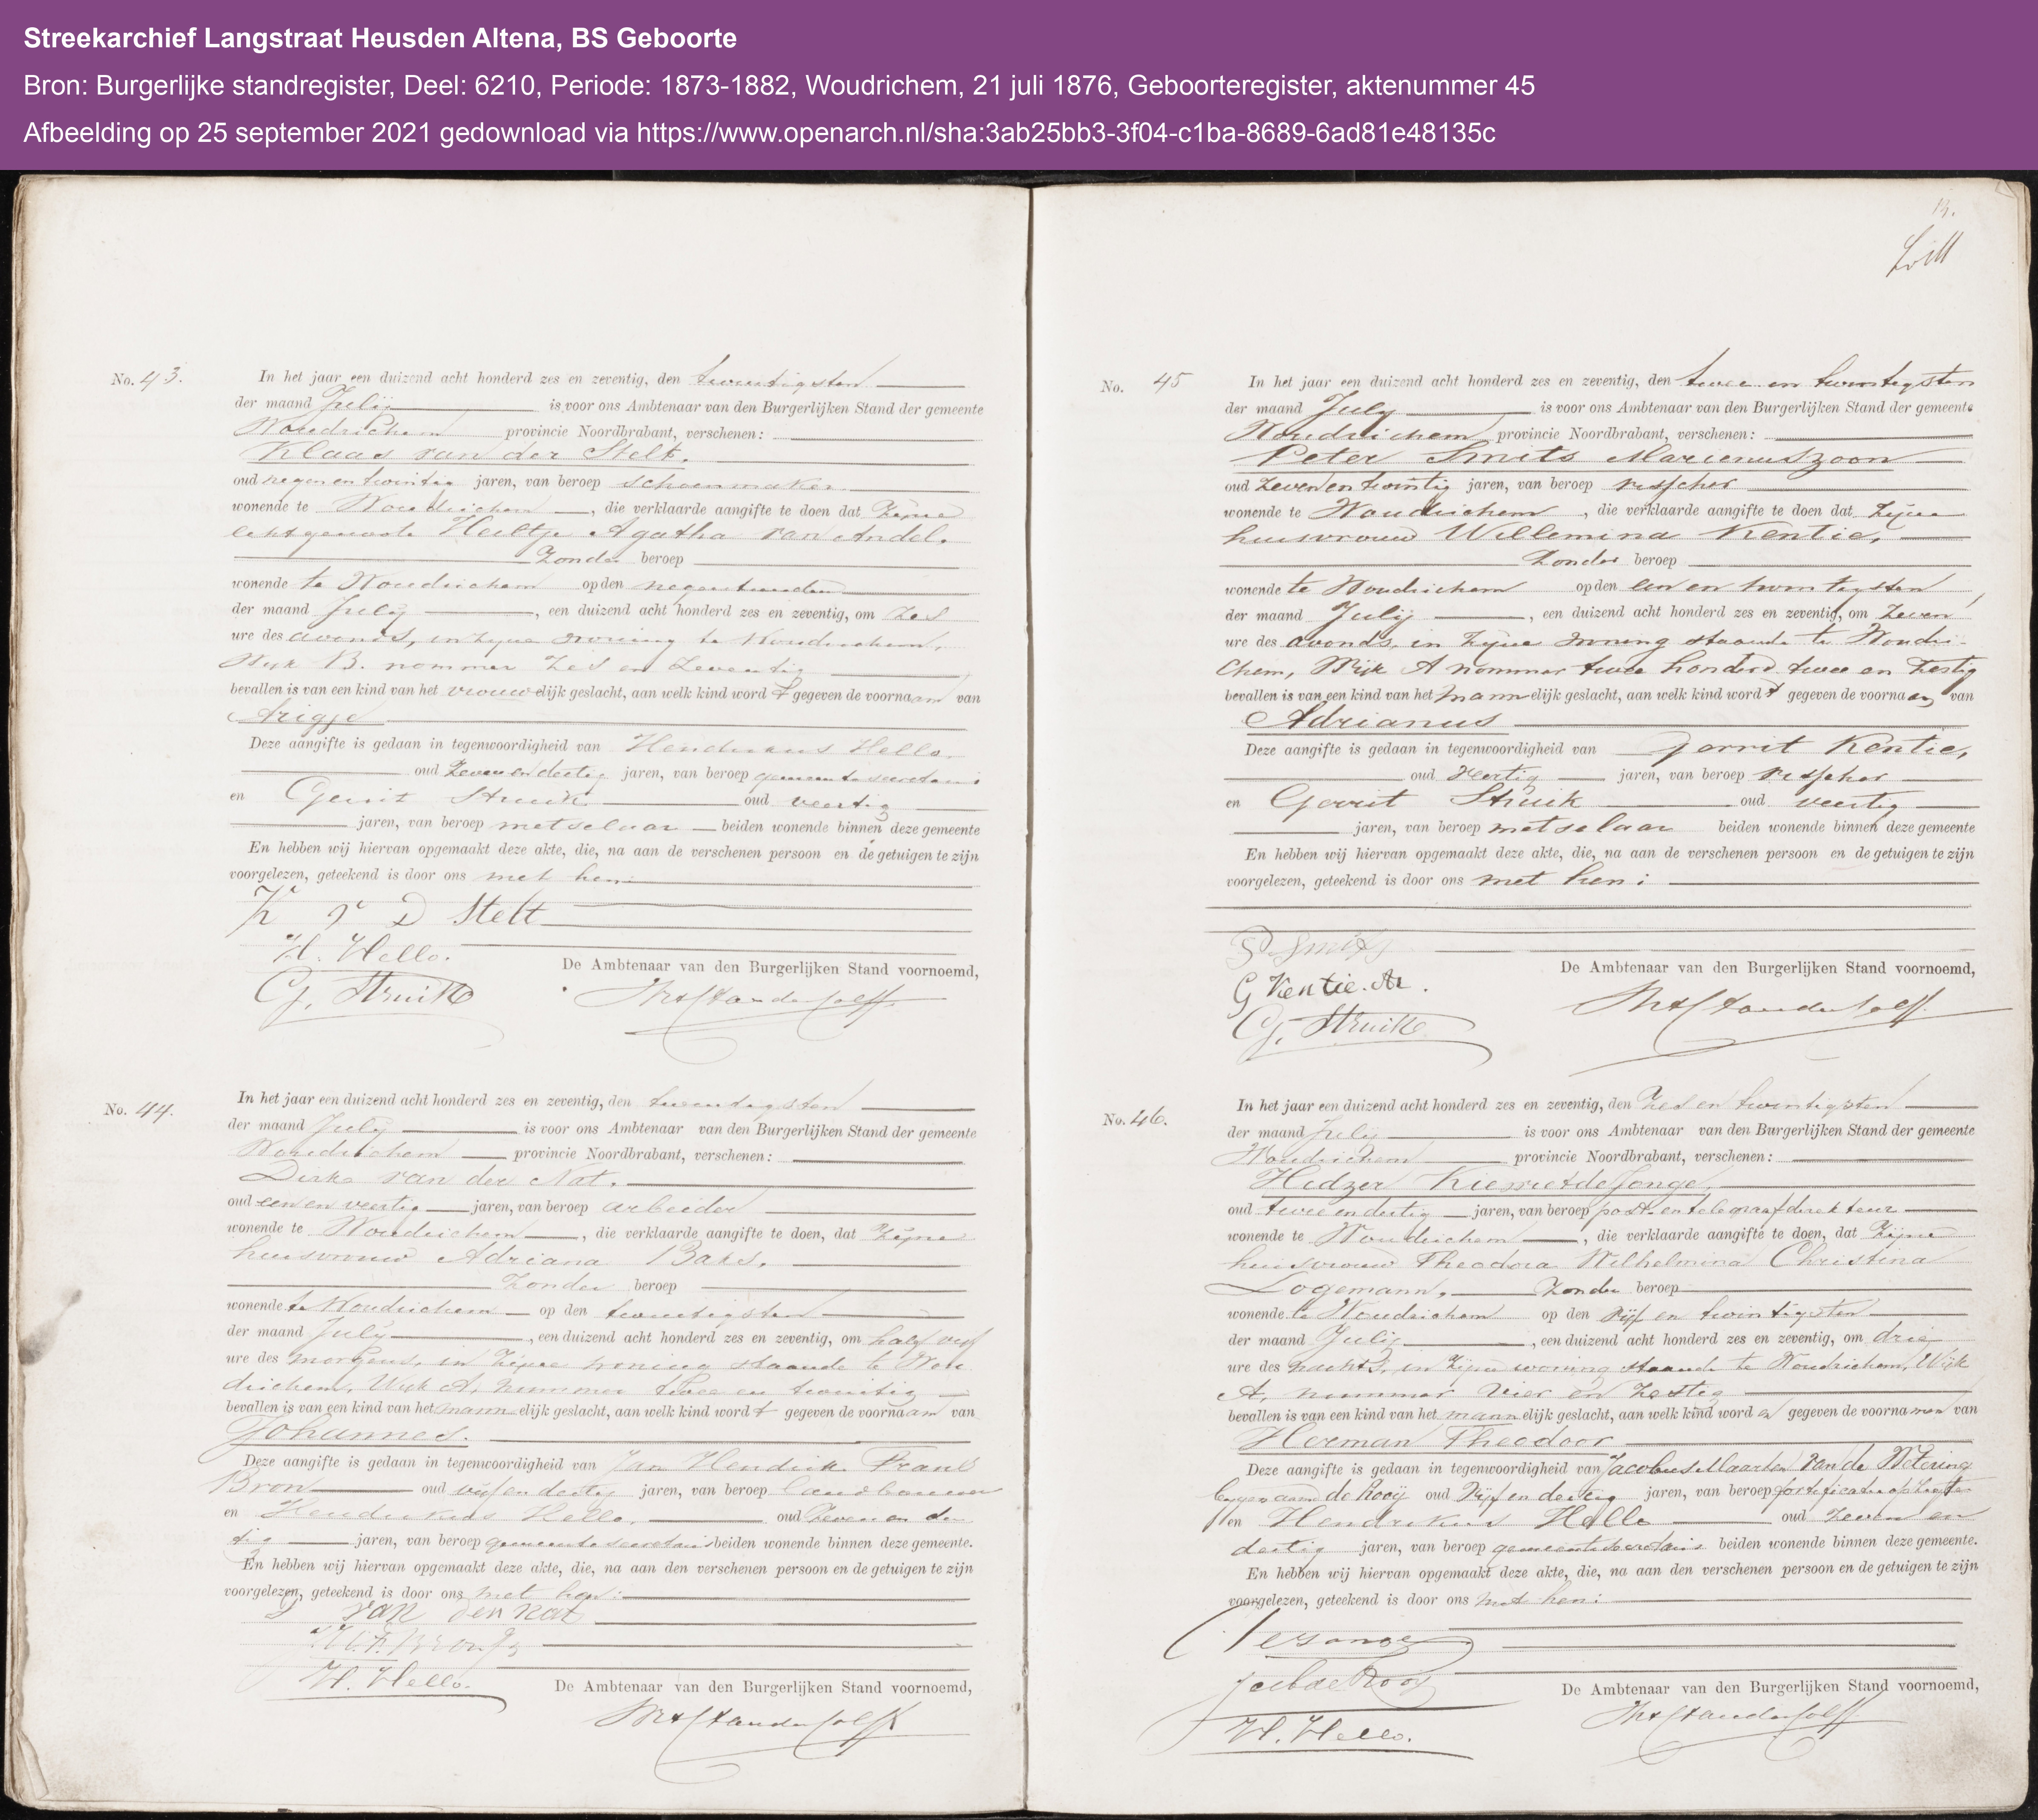 Streekarchief Langstraat Heusden Altena, BS Geboorte
Bron: Burgerlijke standregister, Deel: 6210, Periode: 1873-1882, Woudrichem, 21 juli 1876, Geboorteregister, aktenummer 45
Afbeelding op 25 september 2021 gedownload via https://www.openarch.nl/sha:3ab25bb3-3f04-c1ba-8689-6ad81e48135c
No. 43.
In het jaar een duizend acht honderd zes en zeventig, den twintigsten
der maand Julij is voor ons Ambtenaar van den Burgerlijken Stand der gemeente
Woudrichem provincie Noordbrabant, verschenen:
Klaas van der Stelt.
oud negen en twintig jaren, van beroep schoenmaker
wonende te Woudrichem, die verklaarde aangifte te doen dat zijne
echtgenoote Heiltje Agatha van Andel.
Zonder beroep
wonende te Woudrichem op den negentienden
der maand Julij, een duizend acht honderd zes en zeventig, om zes
ure des avonds, in zijne woning te Woudrichem,
Wijk B. nommer zes en zeventig
bevallen is van een kind van het vrouwelijk geslacht, aan welk kind wordt gegeven de voornaam van
Arigje
Deze aangifte is gedaan in tegenwoordigheid van Hendrikus Hello
oud zeven en dertig jaren, van beroep gemeente secretaris
en Gerrit Struik oud veertig
jaren, van beroep metselaar beiden wonende binnen deze gemeente
En hebben wij hiervan opgemaakt deze akte, die, na aan de verschenen persoon en de getuigen te zijn
voorgelezen, geteekend is door ons met hen:
K v D Stelt
H. Hello.
G. Struik
De Ambtenaar van den Burgerlijken Stand voornoemd,
No. 44.
In het jaar een duizend acht honderd zes en zeventig, den twintigsten
der maand Julij is voor ons Ambtenaar van den Burgerlijken Stand der gemeente
Woudrichem provincie Noordbrabant, verschenen:
Dirk van der Nat.
oud een en veertig jaren, van beroep arbeider
wonende te Woudrichem, die verklaarde aangifte te doen, dat zijne
huisvrouw Adriana Baks.
Zonder beroep
wonende te Woudrichem op den twintigsten
der maand Julij, een duizend acht honderd zes en zeventig, om half vijf
ure des morgens, in zijne woning staande te Wou
drichem, Wijk A, nummer twee en twintig
bevallen is van een kind van het mannelijk geslacht, aan welk kind wordt gegeven de voornaam van
Johannes.
Deze aangifte is gedaan in tegenwoordigheid van Jan Hendrik Frans
Bron oud vijf en dertig jaren, van beroep landbouwer
en Hendrikus Hello. oud zeven en der
tig jaren, van beroep gemeente secretaris beiden wonende binnen deze gemeente.
En hebben wij hiervan opgemaakt deze akte, die, na aan den verschenen persoon en de getuigen te zijn
voorgelezen, geteekend is door ons met hen:
van den nat
H. Hello.
De Ambtenaar van den Burgerlijken Stand voornoemd,
13.
No. 45
In het jaar een duizend acht honderd zes en zeventig, den twee en twintigsten
der maand July is voor ons Ambtenaar van den Burgerlijken Stand der gemeente
Woudrichem provincie Noordbrabant, verschenen:
Peter Smits Marienuszoon
oud zeven en twintig jaren, van beroep visscher
wonende te Woudrichem, die verklaarde aangifte te doen dat zijne
huisvrouw Willemina Kentie,
Zonder beroep
wonende te Woudrichem op den een en twintigsten
der maand Julij, een duizend acht honderd zes en zeventig, om zeven
ure des avonds, in zijne woning staande te Woudri-
chem, Wijk A nommer twee honderd twee en zestig
bevallen is van een kind van het mannelijk geslacht, aan welk kind wordt gegeven de voornaam van
Adrianus
Deze aangifte is gedaan in tegenwoordigheid van Gerrit Kentie,
oud veertig jaren, van beroep visscher
en Gerrit Struik oud veertig
jaren, van beroep metselaar beiden wonende binnen deze gemeente
En hebben wij hiervan opgemaakt deze akte, die, na aan de verschenen persoon en de getuigen te zijn
voorgelezen, geteekend is door ons met hen:
P. Smits
G Kentie. Az.
G. Struik
De Ambtenaar van den Burgerlijken Stand voornoemd,
No. 46.
In het jaar een duizend acht honderd zes en zeventig, den zes en twintigsten
der maand Julij is voor ons Ambtenaar van den Burgerlijken Stand der gemeente
Woudrichem provincie Noordbrabant, verschenen:
Hedzer Kiewiet de Jonge,
oud twee en dertig jaren, van beroep post en telegraafdirekteur
wonende te Woudrichem, die verklaarde aangifte te doen, dat zijne
huisvrouw Theodora Wilhelmina Christina
Logemann, Zonder beroep
wonende te Woudrichem op den vijf en twintigsten
der maand Julij, een duizend acht honderd zes en zeventig, om drie
ure des nachts, in zijne woning staande te Woudrichem, Wijk
A, nummer vier en zestig
bevallen is van een kind van het mannelijk geslacht, aan welk kind worden gegeven de voornamen van
Herman Theodoor
Deze aangifte is gedaan in tegenwoordigheid van Jacobus Maarten van de Wetering
bygenaamd de Rooij oud vijf en dertig jaren, van beroep
en Hendrikus Hello oud zeven en
dertig jaren, van beroep gemeentesecretaris beiden wonende binnen deze gemeente.
En hebben wij hiervan opgemaakt deze akte, die, na aan den verschenen persoon en de getuigen te zijn
voorgelezen, geteekend is door ons met hen:
H. Hello.
De Ambtenaar van den Burgerlijken Stand voornoemd,